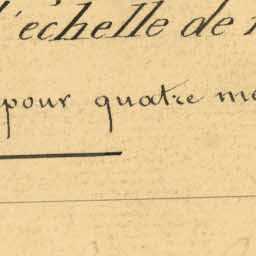 l'échelle de
pour quatre